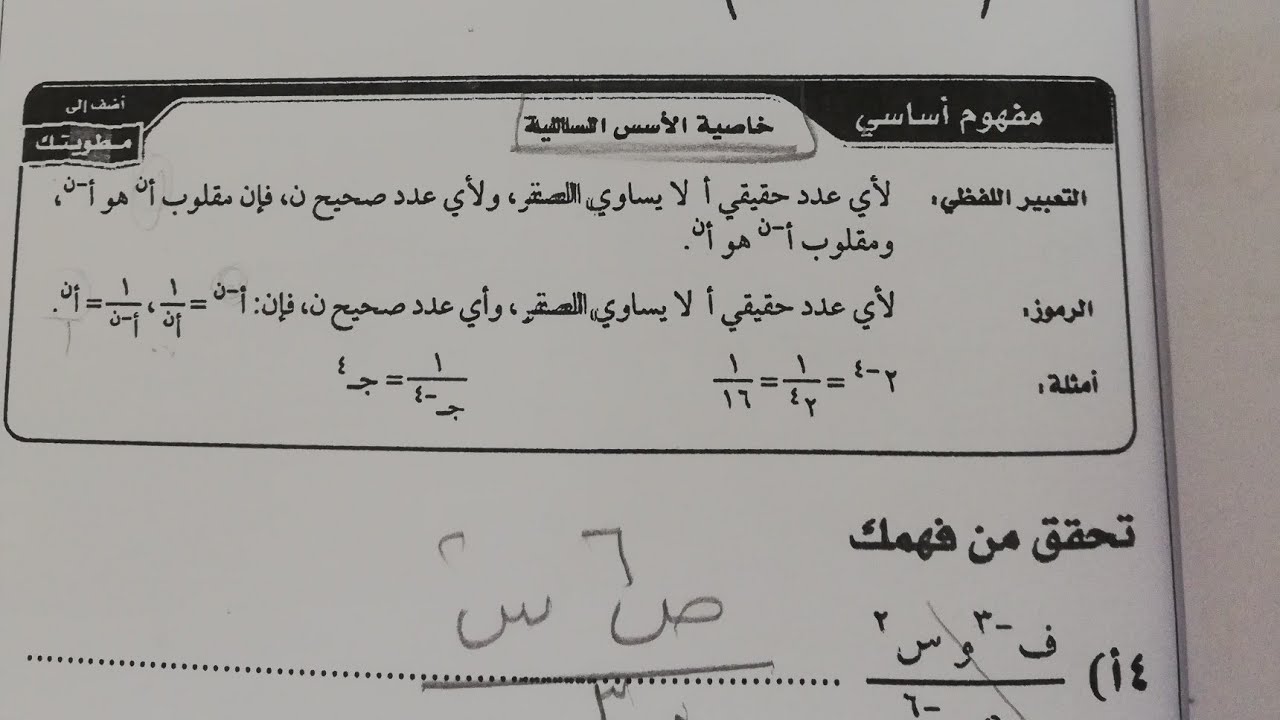 مفهوم أساسي
خاصية الأسس السالبة
أضف إلى
مطويتك
التعبير اللفظي: لأي عدد حقيقي أ لا يساوي الصفر، ولأي عدد صحيح ن، فإن مقلوب أⁿ هو أ⁻ن،
ومقلوب أ⁻ن هو أن.
الرموز: لأي عدد حقيقي أ لا يساوي الصفر، وأي عدد صحيح ن، فإن: أ⁻ن = ١/أن، ١/أ⁻ن = أن.
أمثلة: ٢⁻٤ = ١/٢٤ = ١/١٦ ١/جـ⁻٤ = جـ٤
تحقق من فهمك
ص٦ س٢
٤أ) ف⁻٣ و س٢